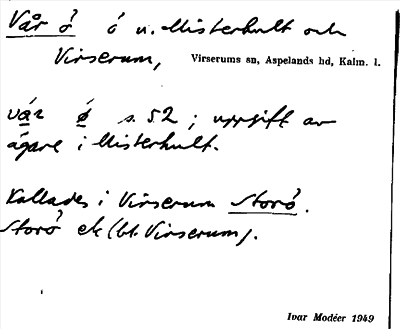 Vår ö ö u. Misterhult och
Virserum, Virserums sn, Aspelands hd, Kalm. l.
vår ö s. 52 ; uppgift av
ägare i Misterhult.
Kallades i Virserum Storö.
Storö ek (bl. Virserum).
Ivar Modéer 1949